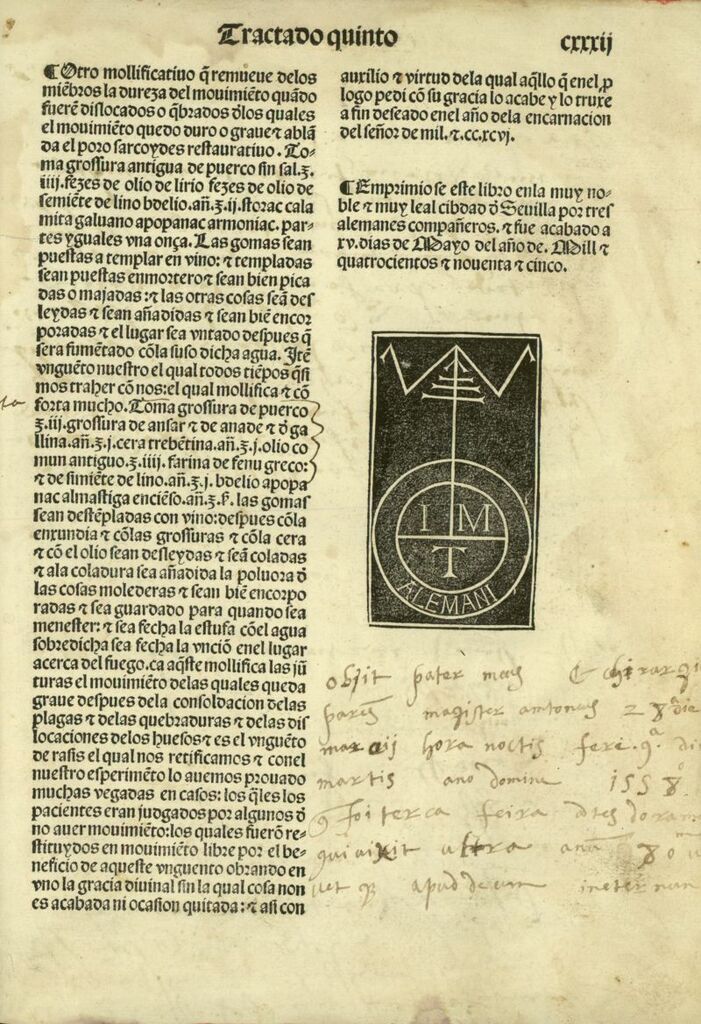 Tractado quinto
cxxxij
¶ Otro mollificatiuo q̃ remueue delos
miẽbros la dureza del mouimiẽto quãdo
fuerẽ dislocados o q̃brados d̃los quales
el mouimiẽto quedo duro o graue ⁊ ablã
da el poro sarcoydes restauratiuo. To-
ma grossura antigua de puerco sin sal.ʒ.
iiij. fezes de olio de lirio fezes de olio de
semiẽte de lino bdelio. añ.ʒ.ij. storac cala
mita galuano apopanac armoniac. par-
tes yguales vna onça. Las gomas sean
puestas a templar en vino: ⁊ templadas
sean puestas enmortero ⁊ sean bien pica
das o majadas: ⁊ las otras cosas seã des
leydas ⁊ sean añadidas ⁊ sean biẽ encor
poradas ⁊ el lugar sea vntado despues q̃
sera fumẽtado cõla suso dicha agua. Itẽ
vnguẽto nuestro el qual todos tiẽpos q̃si
mos traher cõ nos: el qual mollifica ⁊ cõ
forta mucho. Toma grossura de puerco
ʒ.iij. grossura de ansar ⁊ de anade ⁊ d̃ ga
llina. añ.ʒ.j. cera trebẽtina. añ.ʒ.j. olio co
mun antiguo.ʒ.iiij. farina de fenu greco:
⁊ de simiẽte de lino. añ.ʒ.j. bdelio apopa
nac almastiga enciẽso. añ.ʒ. las gomas
sean destẽpladas con vino: despues cõla
enxundia ⁊ cõlas grossuras ⁊ cõla cera
⁊ cõ el olio sean desleydas ⁊ seã coladas
⁊ ala coladura sea añadida la poluora d̃
las cosas molederas ⁊ sean biẽ encorpo
radas ⁊ sea guardado para quando sea
menester: ⁊ sea fecha la estufa cõel agua
sobredicha sea fecha la vnciõ enel lugar
acerca del fuego. ca aq̃ste mollifica las jũ
turas el mouimiẽto delas quales queda
graue despues dela consoldacion delas
plagas ⁊ delas quebraduras ⁊ delas dis
locaciones delos huesos ⁊ es el vnguẽto
de rasis el qual nos retificamos ⁊ conel
nuestro esperimẽto lo auemos prouado
muchas vegadas en casos: los q̃les los
pacientes eran judgados por algunos d̃
no auer mouimiẽto: los quales fuerõ re-
stituydos en mouimiẽto libre por el be-
neficio de aqueste vnguento obrando en
vno la gracia diuinal sin la qual cosa non
es acabada ni ocasion quitada: ⁊ asi con
auxilio ⁊ virtud dela qual aq̃llo q̃ enel p
logo pedi cõ su gracia lo acabe y lo truxe
a fin deseado enel año dela encarnacion
del señor de mil.⁊.cc.xcvj.
¶ Emprimiose este libro enla muy no-
ble ⁊ muy leal cibdad d̃ Seuilla por tres
alemanes compañeros. ⁊ fue acabado a
xv. dias de Mayo del año de. Mill ⁊
quatrocientos ⁊ nouenta ⁊ cinco.
I M
T
ALEMANI
obijt pater meus
magister antonius 28 die
hora noctis fere . 9ª
martis ano domini 1558
foi terca feira
ultra 80
apud deum in eternum